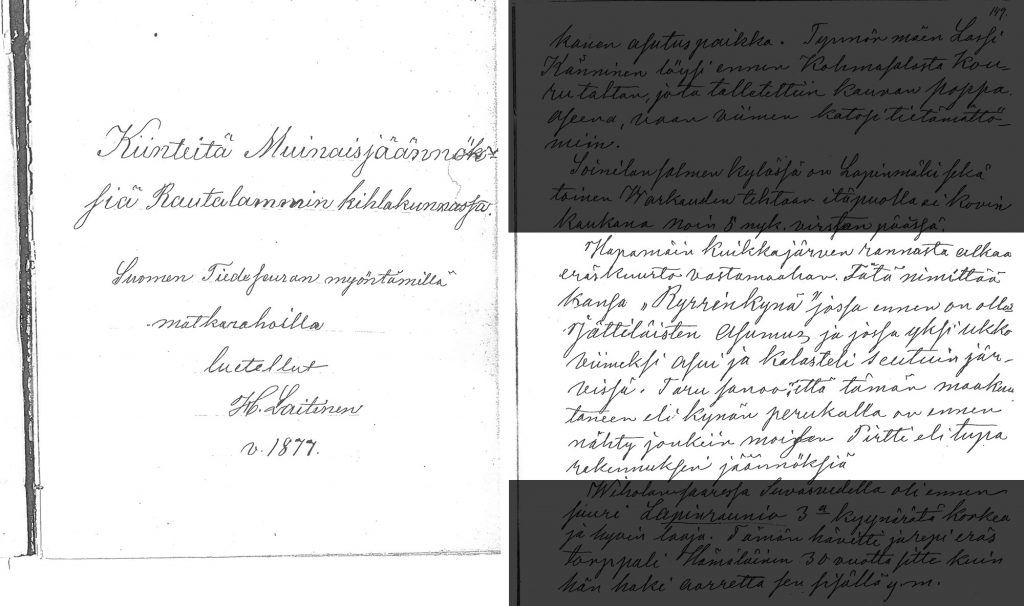 Kiinteitä Muinaisjäännök-
siä Rautalammin kihlakunnassa.
Suomen Tiedeseuran myöntämillä
matkarahoilla
luetellut
H. Laitinen
v. 1877.
149.
kanen asutuspaikka. Tynnörmäen Lassi
Känninen löysi ennen Kohmasalosta Kou-
rutaltan, jota talletettiin kauvan poppa
aseena, vaan viimen katosi tietämättö-
miin.
Soinilansalmen kylässä on Lapinmäki sekä
toinen Warkauden tehtaan itäpuolla ei kovin
kaukana noin 8 nyk. virstan päässä.
Hapamäin kuikkajärven rannasta alkaa
eräs kuusto vastamaahan. Tätä nimittää
kansa „Ryrrinkynä" jossa ennen on ollu
Jättiläisten asumus, ja jossa yksi ukko
viimeksi asui ja kalasteli seutuin jär-
veissä. Taru sanoo, että tämän maakun
taneen eli kynän perukalla on ennen
nähty jonkein moisen Pirtti eli tupa
rakennuksen jäännöksiä
Suvasvedella oli ennen
suuri Lapinraunio 3 a kyynärätä korkea
ja hyvin laaja. Tämän hävitti ja repi eräs
torppali Hämäläinen 30 vuotta sitte kuin
hän haki aarretta sen sisällä y.m.